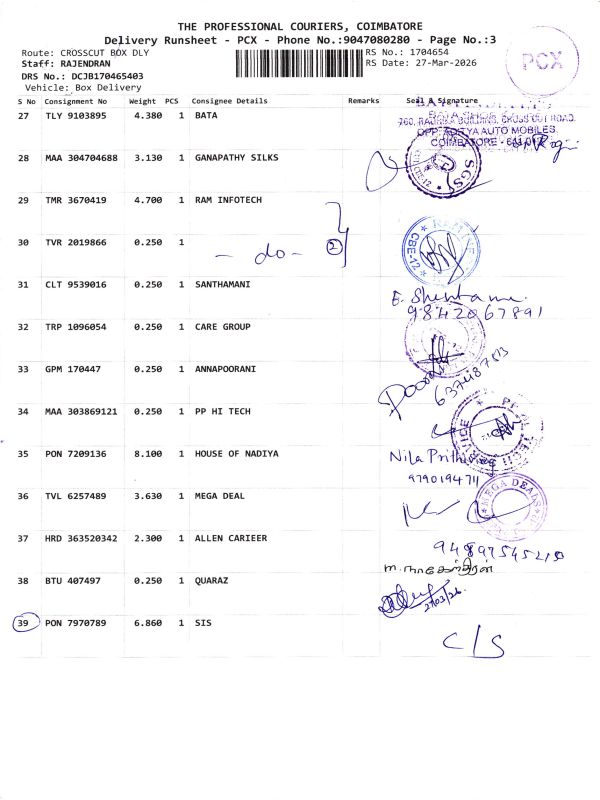 THE PROFESSIONAL COURIERS, COIMBATORE
Delivery Runsheet - PCX - Phone No.:9047080280 - Page No.:3
Route: CROSSCUT BOX DLY
RS No.: 1704654
Staff: RAJENDRAN
RS Date: 27-Mar-2026
DRS No.: DCJB170465403
Vehicle: Box Delivery
PCX
S No Consignment No Weight PCS Consignee Details Remarks Seal & Signature
27 TLY 9103895 4.380 1 BATA
OPP. ADITYA AUTO MOBILES
28 MAA 304704688 3.130 1 GANAPATHY SILKS
SGS
29 TMR 3670419 4.700 1 RAM INFOTECH
30 TVR 2019866 0.250 1
- do - 2
CBE-12
31 CLT 9539016 0.250 1 SANTHAMANI
9842067891
32 TRP 1096054 0.250 1 CARE GROUP
33 GPM 170447 0.250 1 ANNAPOORANI
34 MAA 303869121 0.250 1 PP HI TECH
35 PON 7209136 8.100 1 HOUSE OF NADIYA
9790194711
36 TVL 6257489 3.630 1 MEGA DEAL
MEGA DEALS
37 HRD 363520342 2.300 1 ALLEN CARIEER
38 BTU 407497 0.250 1 QUARAZ
27/03/26
39 PON 7970789 6.860 1 SIS
C/S